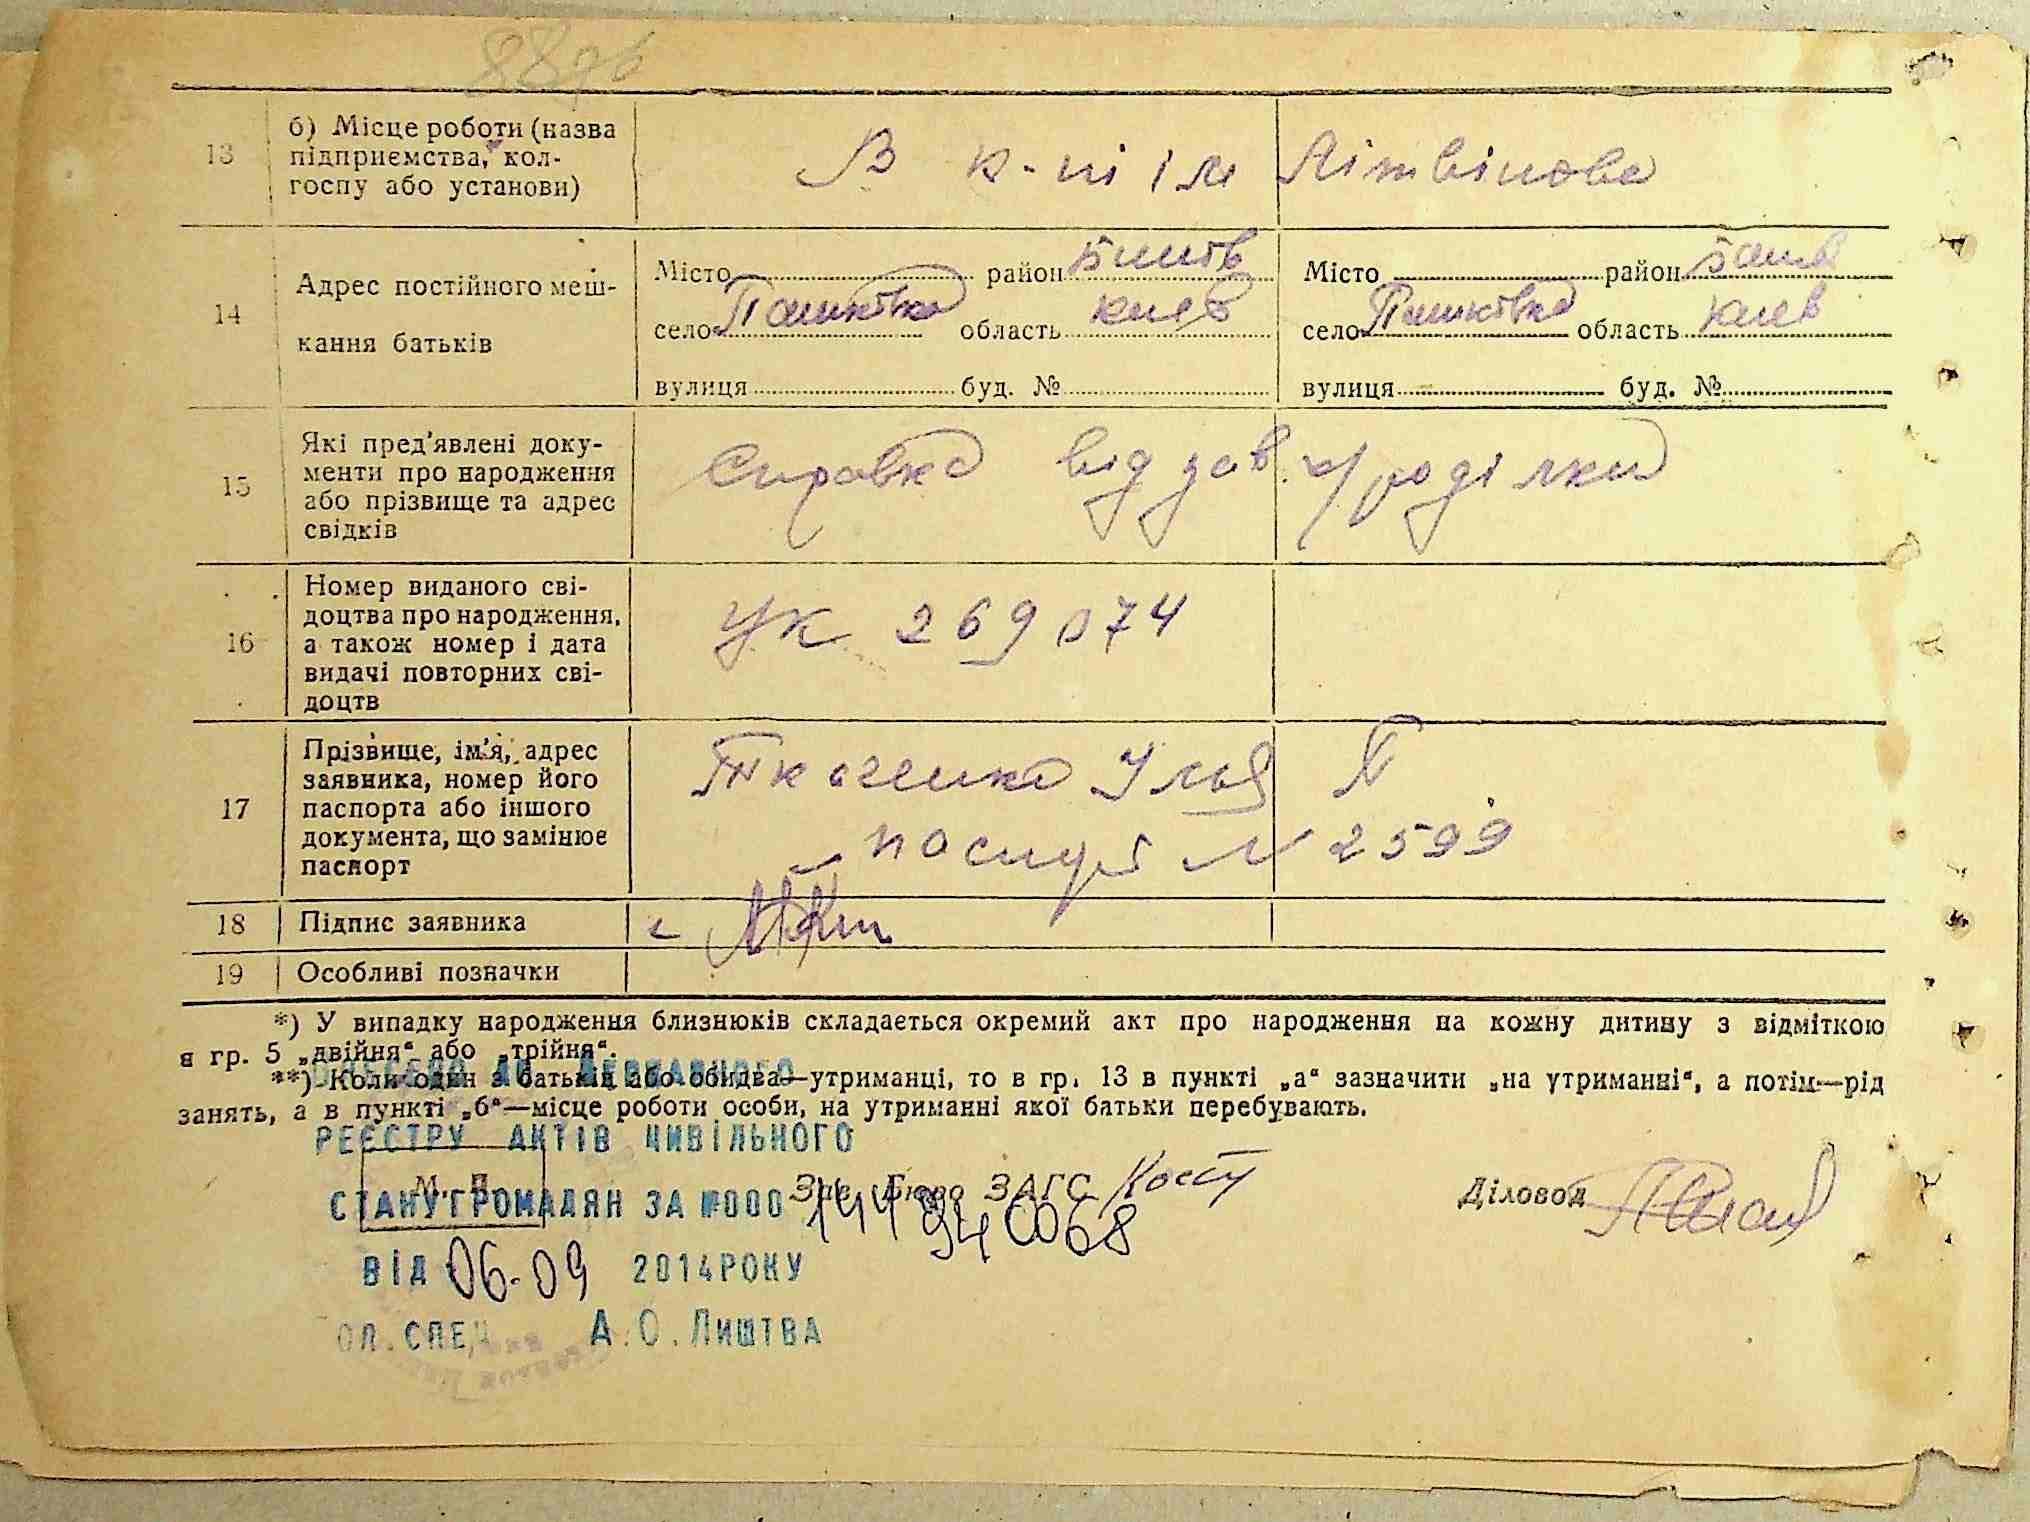 88
13 б) Місце роботи (назва
підприємства, кол-
госпу або установи)
В к-пі ім Літвінова
14 Адрес постійного меш-
кання батьків
Місто район Бишів
село Пашківка область Киев
вулиця буд. №
Місто район Бишів
село Пашківка область Киев
вулиця буд. №
15 Які пред'явлені доку-
менти про народження
або прізвище та адрес
свідків
Справка від зав роділки
16 Номер виданого сві-
доцтва про народження,
а також номер і дата
видачі повторних сві-
доцтв
УК 269074
17 Прізвище, ім'я, адрес
заявника, номер його
паспорта або іншого
документа, що замінює
паспорт
Ткаченко Улья П
паспорт N 2599
18 Підпис заявника
19 Особливі позначки
*) У випадку народження близнюків складається окремий акт про народження на кожну дитину з відміткою
в гр. 5 „двійня“ або „трійня“.
**) Коли один з батьків або обидва—утриманці, то в гр. 13 в пункті „а“ зазначити „на утриманні“, а потім—рід
занять, а в пункті „б“—місце роботи особи, на утриманні якої батьки перебувають.
ВНЕСЕНО ДО ДЕРЖАВНОГО
РЕЄСТРУ АКТІВ ЦИВІЛЬНОГО
СТАНУ ГРОМАДЯН ЗА №000
М. П.
Зав. Бюро ЗАГС
Діловод
940068
ВІД 06.09 2014РОКУ
ГОЛ. СПЕЦ. А.О.ЛИШТВА